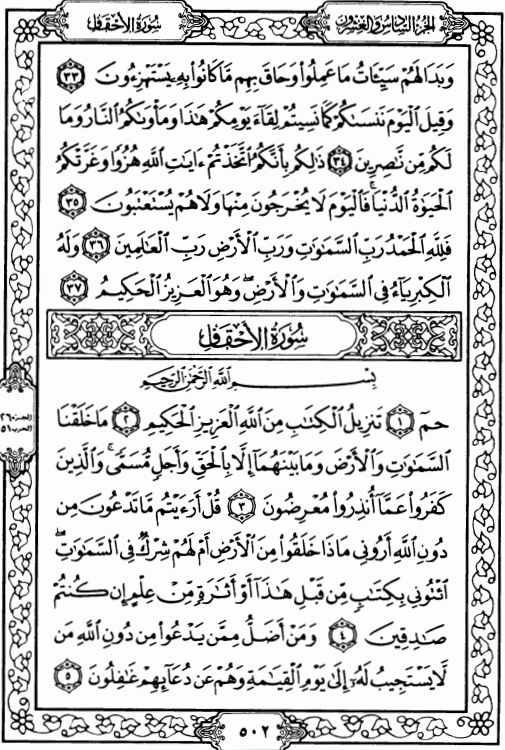 سُورَةُ الأَحْقَافِ
الجُزءُ السَّادِسُ وَالعِشْرُونَ
وَبَدَا لَهُمْ سَيِّـَٔاتُ مَا عَمِلُوا۟ وَحَاقَ بِهِم مَّا كَانُوا۟ بِهِۦ يَسْتَهْزِءُونَ ٣٣
وَقِيلَ ٱلْيَوْمَ نَنسَىٰكُمْ كَمَا نَسِيتُمْ لِقَآءَ يَوْمِكُمْ هَـٰذَا وَمَأْوَىٰكُمُ ٱلنَّارُ وَمَا
لَكُم مِّن نَّـٰصِرِينَ ٣٤ ذَٰلِكُم بِأَنَّكُمُ ٱتَّخَذْتُمْ ءَايَـٰتِ ٱللَّهِ هُزُوًا وَغَرَّتْكُمُ
ٱلْحَيَوٰةُ ٱلدُّنْيَا ۚ فَٱلْيَوْمَ لَا يُخْرَجُونَ مِنْهَا وَلَا هُمْ يُسْتَعْتَبُونَ ٣٥
فَلِلَّهِ ٱلْحَمْدُ رَبِّ ٱلسَّمَـٰوَٰتِ وَرَبِّ ٱلْأَرْضِ رَبِّ ٱلْعَـٰلَمِينَ ٣٦ وَلَهُ
ٱلْكِبْرِيَآءُ فِى ٱلسَّمَـٰوَٰتِ وَٱلْأَرْضِ ۖ وَهُوَ ٱلْعَزِيزُ ٱلْحَكِيمُ ٣٧
سُورَةُ الأَحْقَافِ
بِسْمِ ٱللَّهِ ٱلرَّحْمَـٰنِ ٱلرَّحِيمِ
حمٓ ١ تَنزِيلُ ٱلْكِتَـٰبِ مِنَ ٱللَّهِ ٱلْعَزِيزِ ٱلْحَكِيمِ ٢ مَا خَلَقْنَا
ٱلسَّمَـٰوَٰتِ وَٱلْأَرْضَ وَمَا بَيْنَهُمَآ إِلَّا بِٱلْحَقِّ وَأَجَلٍ مُّسَمًّى ۚ وَٱلَّذِينَ
كَفَرُوا۟ عَمَّآ أُنذِرُوا۟ مُعْرِضُونَ ٣ قُلْ أَرَءَيْتُم مَّا تَدْعُونَ مِن
دُونِ ٱللَّهِ أَرُونِى مَاذَا خَلَقُوا۟ مِنَ ٱلْأَرْضِ أَمْ لَهُمْ شِرْكٌ فِى ٱلسَّمَـٰوَٰتِ ۖ
ٱئْتُونِى بِكِتَـٰبٍ مِّن قَبْلِ هَـٰذَآ أَوْ أَثَـٰرَةٍ مِّنْ عِلْمٍ إِن كُنتُمْ
صَـٰدِقِينَ ٤ وَمَنْ أَضَلُّ مِمَّن يَدْعُوا۟ مِن دُونِ ٱللَّهِ مَن
لَّا يَسْتَجِيبُ لَهُۥٓ إِلَىٰ يَوْمِ ٱلْقِيَـٰمَةِ وَهُمْ عَن دُعَآئِهِمْ غَـٰفِلُونَ ٥
الجزء ٢٦
الحزب ٥١
٥٠٢